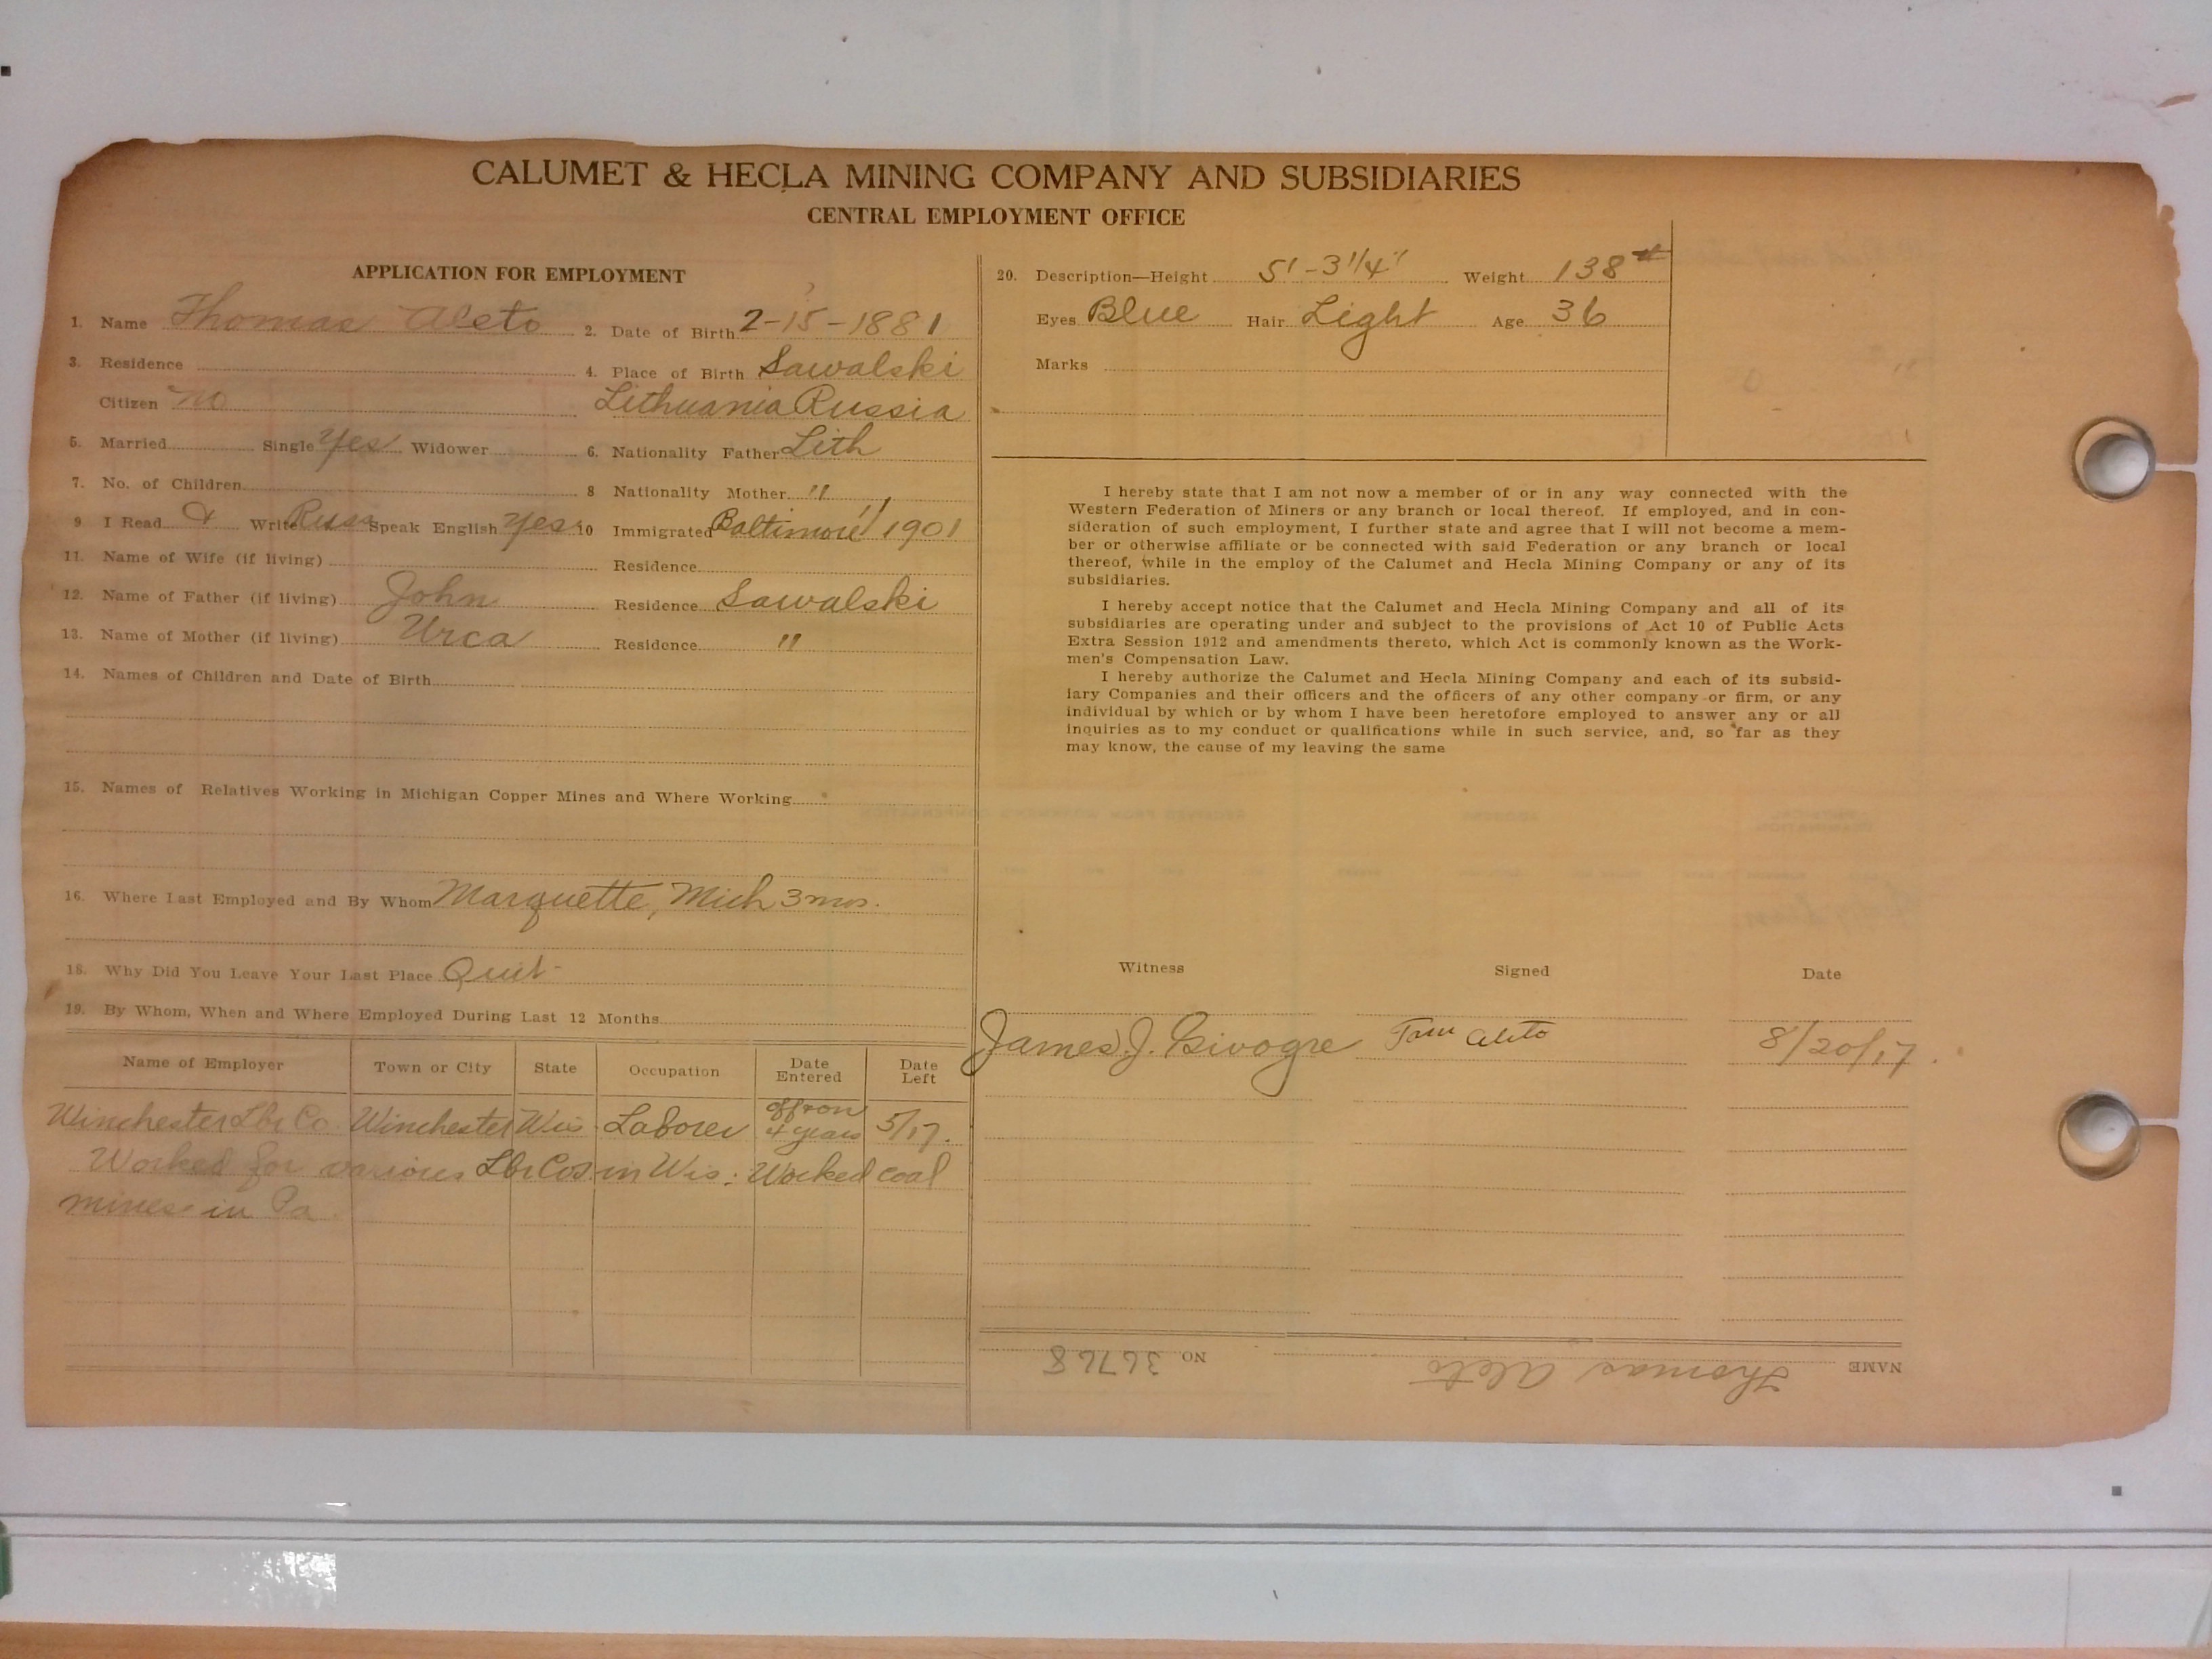 CALUMET & HECLA MINING COMPANY AND SUBSIDIARIES
CENTRAL EMPLOYMENT OFFICE
APPLICATION FOR EMPLOYMENT
1. Name Thomas Aleto 2. Date of Birth 2-15-1881
3. Residence 4. Place of Birth Sawalski
Citizen no Lithuania Russia
5. Married Single Yes Widower 6. Nationality Father Lith
7. No. of Children 8 Nationality Mother "
9. I Read & Write Russ Speak English Yes 10 Immigrated Baltimore 1901
11. Name of Wife (if living) Residence
12. Name of Father (if living) John Residence Sawalski
13. Name of Mother (if living) Urca Residence "
14. Names of Children and Date of Birth
15. Names of Relatives Working in Michigan Copper Mines and Where Working
16. Where Last Employed and By Whom Marquette, Mich 3 mos.
18. Why Did You Leave Your Last Place Quit
19. By Whom, When and Where Employed During Last 12 Months
Name of Employer Town or City State Occupation Date Entered Date Left
Winchester Lbr Co. Winchester Wis Laborer off & on 4 years 5/17.
Worked for various Lbr Cos. in Wis: Worked coal
mines in Pa
20. Description—Height 5'-3 1/4" Weight 138 #
Eyes Blue Hair Light Age 36
Marks
I hereby state that I am not now a member of or in any way connected with the
Western Federation of Miners or any branch or local thereof. If employed, and in con-
sideration of such employment, I further state and agree that I will not become a mem-
ber or otherwise affiliate or be connected with said Federation or any branch or local
thereof, while in the employ of the Calumet and Hecla Mining Company or any of its
subsidiaries.
I hereby accept notice that the Calumet and Hecla Mining Company and all of its
subsidiaries are operating under and subject to the provisions of Act 10 of Public Acts
Extra Session 1912 and amendments thereto, which Act is commonly known as the Work-
men's Compensation Law.
I hereby authorize the Calumet and Hecla Mining Company and each of its subsid-
iary Companies and their officers and the officers of any other company or firm, or any
individual by which or by whom I have been heretofore employed to answer any or all
inquiries as to my conduct or qualifications while in such service, and, so far as they
may know, the cause of my leaving the same
Witness Signed Date
James J. Tom Aleto 8/20/17.
NAME Thomas Aleto NO 36768